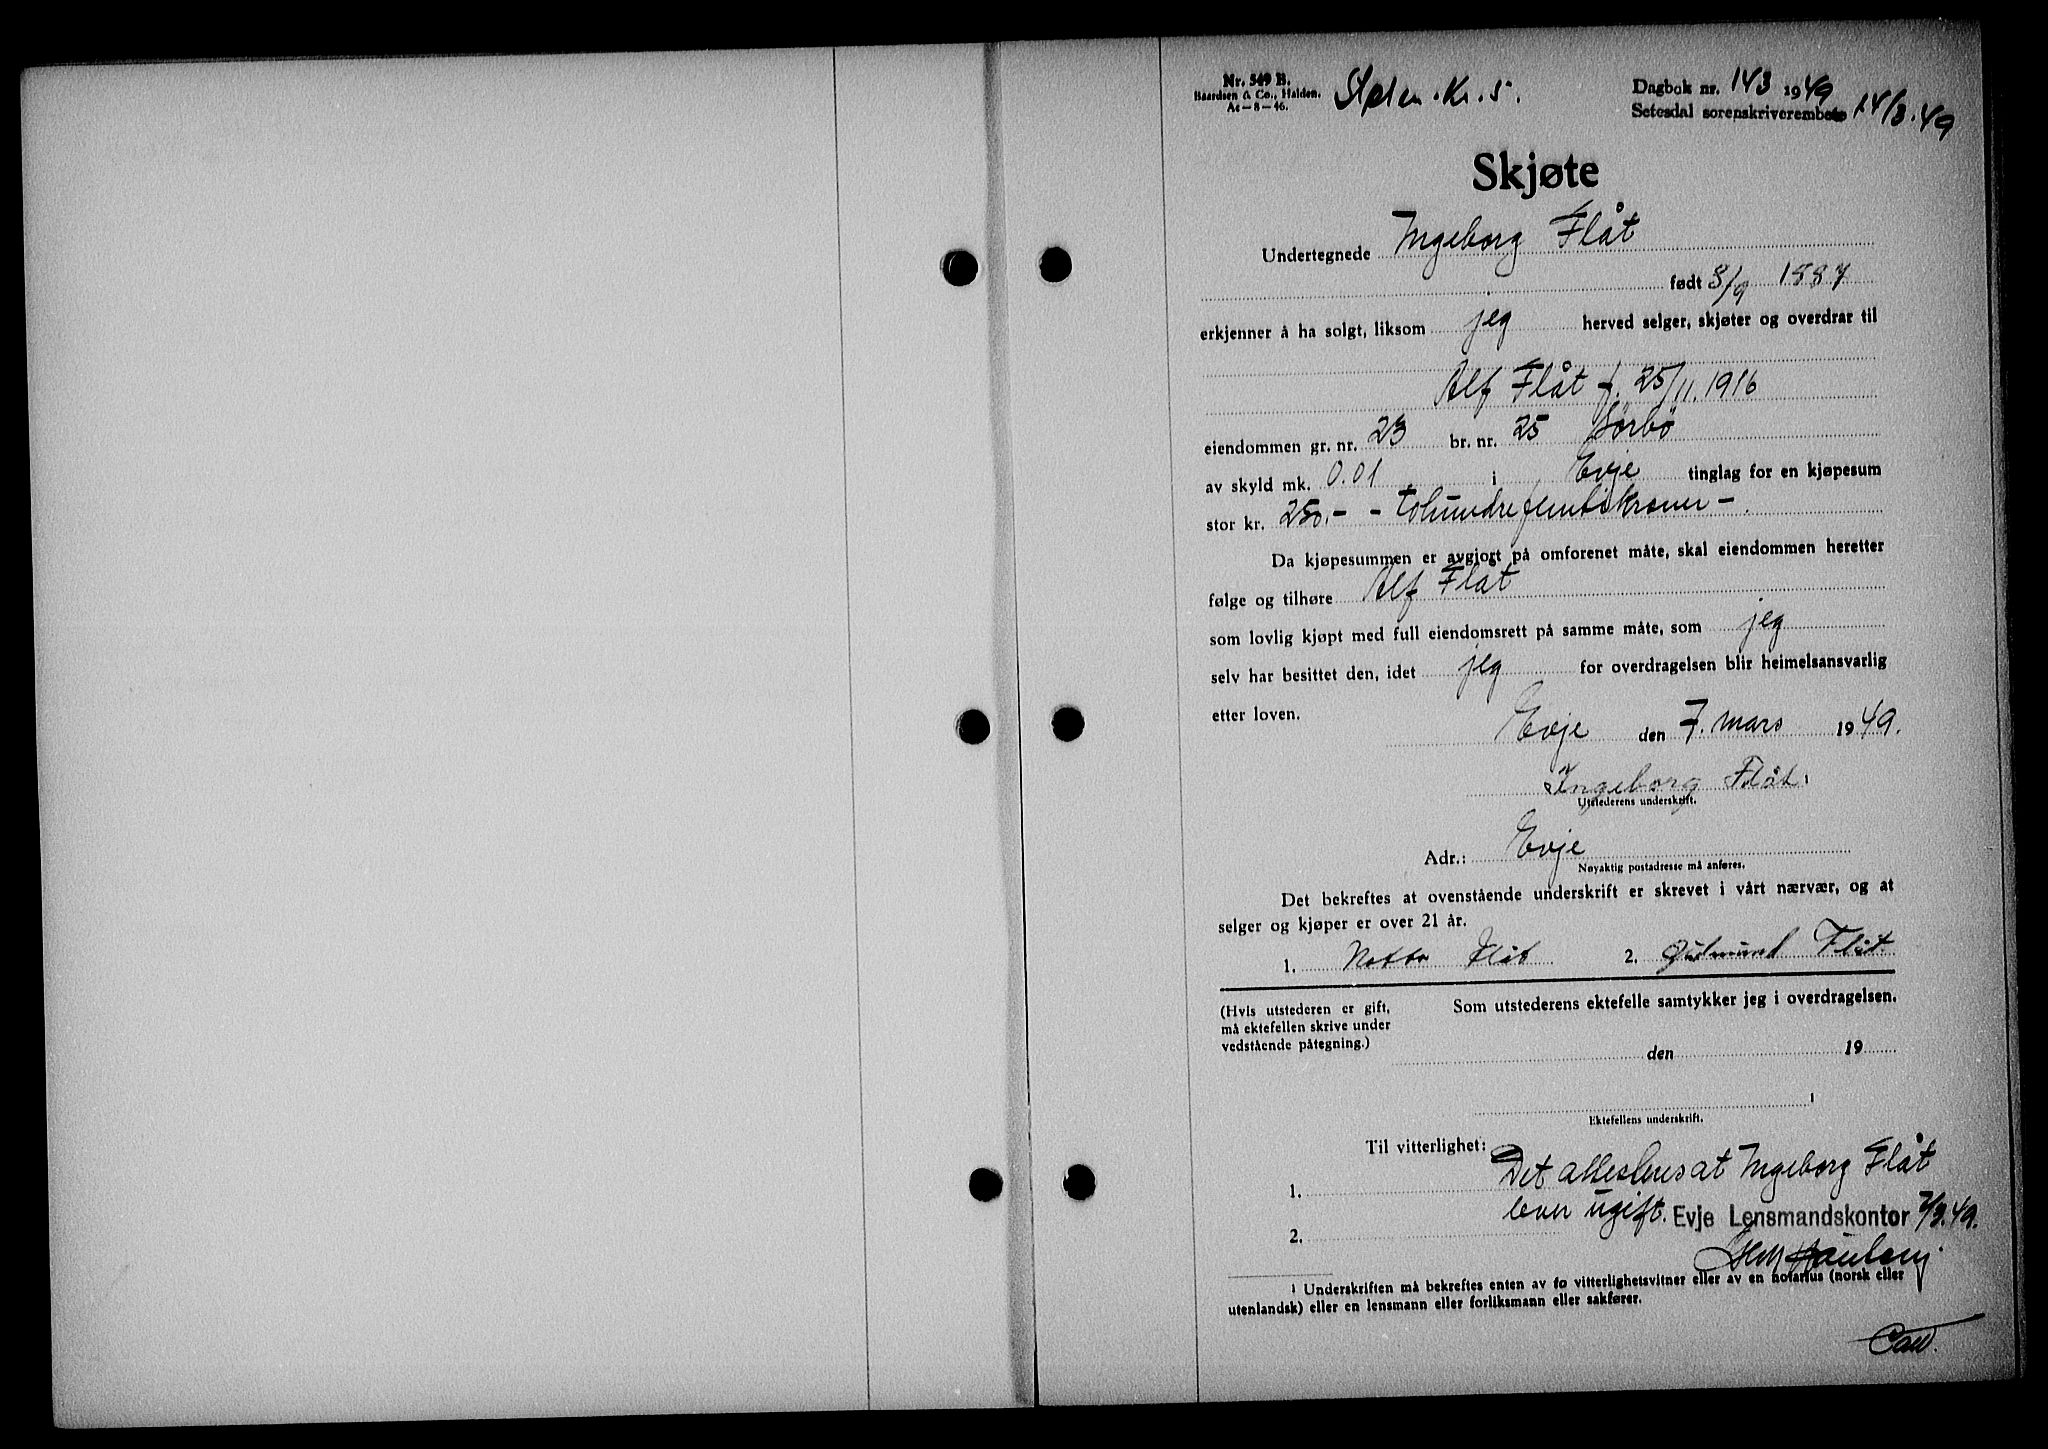 Nr. 549 B.
Baardsen & Co., Halden.
Ac—8—46.
Kr. 5.
Dagbok nr. 143 1949
Setesdal sorenskriverembete 14/3.49
Skjøte
Undertegnede Ingeborg Flåt
født 3/9 1887
erkjenner å ha solgt, liksom jeg herved selger, skjøter og overdrar til
Alf Flåt f. 25/11.1916
eiendommen gr. nr. 23 br. nr. 25 Sörbö
av skyld mk. 0.01 i Evje tinglag for en kjøpesum
stor kr. 250.- - tohundrefemtikroner -.
Da kjøpesummen er avgjort på omforenet måte, skal eiendommen heretter
følge og tilhøre Alf Flåt
som lovlig kjøpt med full eiendomsrett på samme måte, som jeg
selv har besittet den, idet jeg for overdragelsen blir heimelsansvarlig
etter loven.
Evje den 7. mars 1949.
Ingeborg Flåt ¹
Utstederens underskrift.
Adr.: Evje
Nøyaktig postadresse må anføres.
Det bekreftes at ovenstående underskrift er skrevet i vårt nærvær, og at
selger og kjøper er over 21 år.
1. Flåt 2. Gudmund Flåt
(Hvis utstederen er gift,
må ektefellen skrive under
vedstående påtegning.)
Som utstederens ektefelle samtykker jeg i overdragelsen.
den 19
¹
Ektefellens underskrift.
Til vitterlighet:
Det attesteres at Ingeborg Flåt
1.
lever ugift. Evje Lensmandskontor 7/3.49.
2.
¹ Underskriften må bekreftes enten av to vitterlighetsvitner eller av en notarius (norsk eller
utenlandsk) eller en lensmann eller forliksmann eller sakfører.